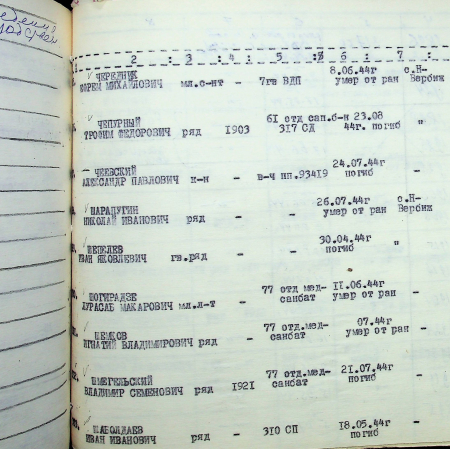 2 : 3 : 4 : 5 : 6 : 7 :
ЧЕРЕДНИК 8.06.44г с.Н-
ЕФРЕМ МИХАЙЛОВИЧ мл.с-нт - 7гв ВДП умер от ран Вербиж
ЧЕПУРНЫЙ 61 отд сап.б-н 23.08
ТРОФИМ ФЕДОРОВИЧ ряд 1903 317 СД 44г. погиб "
ЧЕЕВСКИЙ 24.07.44г
АЛЕКСАНДР ПАВЛОВИЧ к-н - в-ч пп.93419 погиб -
ШАРАПУГИН 26.07.44г с.Н-
НИКОЛАЙ ИВАНОВИЧ ряд - - умер от ран Вербиж
ШЕПЕЛЕВ 30.04.44г
ИВАН ЯКОВЛЕВИЧ гв.ряд - - погиб "
77 отд мед- 11.06.44г
МАКАРОВИЧ мл.л-т - санбат умер от ран -
77 отд.мед- 07.44г
ИГНАТИЙ ВЛАДИМИРОВИЧ ряд - санбат умер от ран -
77 отд.мед- 21.07.44г
ВЛАДИМИР СЕМЕНОВИЧ ряд 1921 санбат погиб -
ШАБОЛДАЕВ 18.05.44г
ИВАН ИВАНОВИЧ ряд - 310 СП погиб -